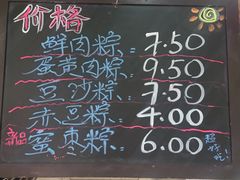 价格
鲜肉粽:7.50
蛋黄肉粽:9.50
豆沙粽:7.50
赤豆粽:4.00
新品 蜜枣粽:6.00 超好吃!